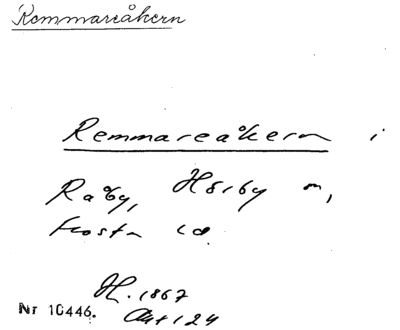 Remmareåkern
Remmareåkern i
Råby, Hörby sn,
Frosta hd
H. 1867
Nr 10446. Akt 124